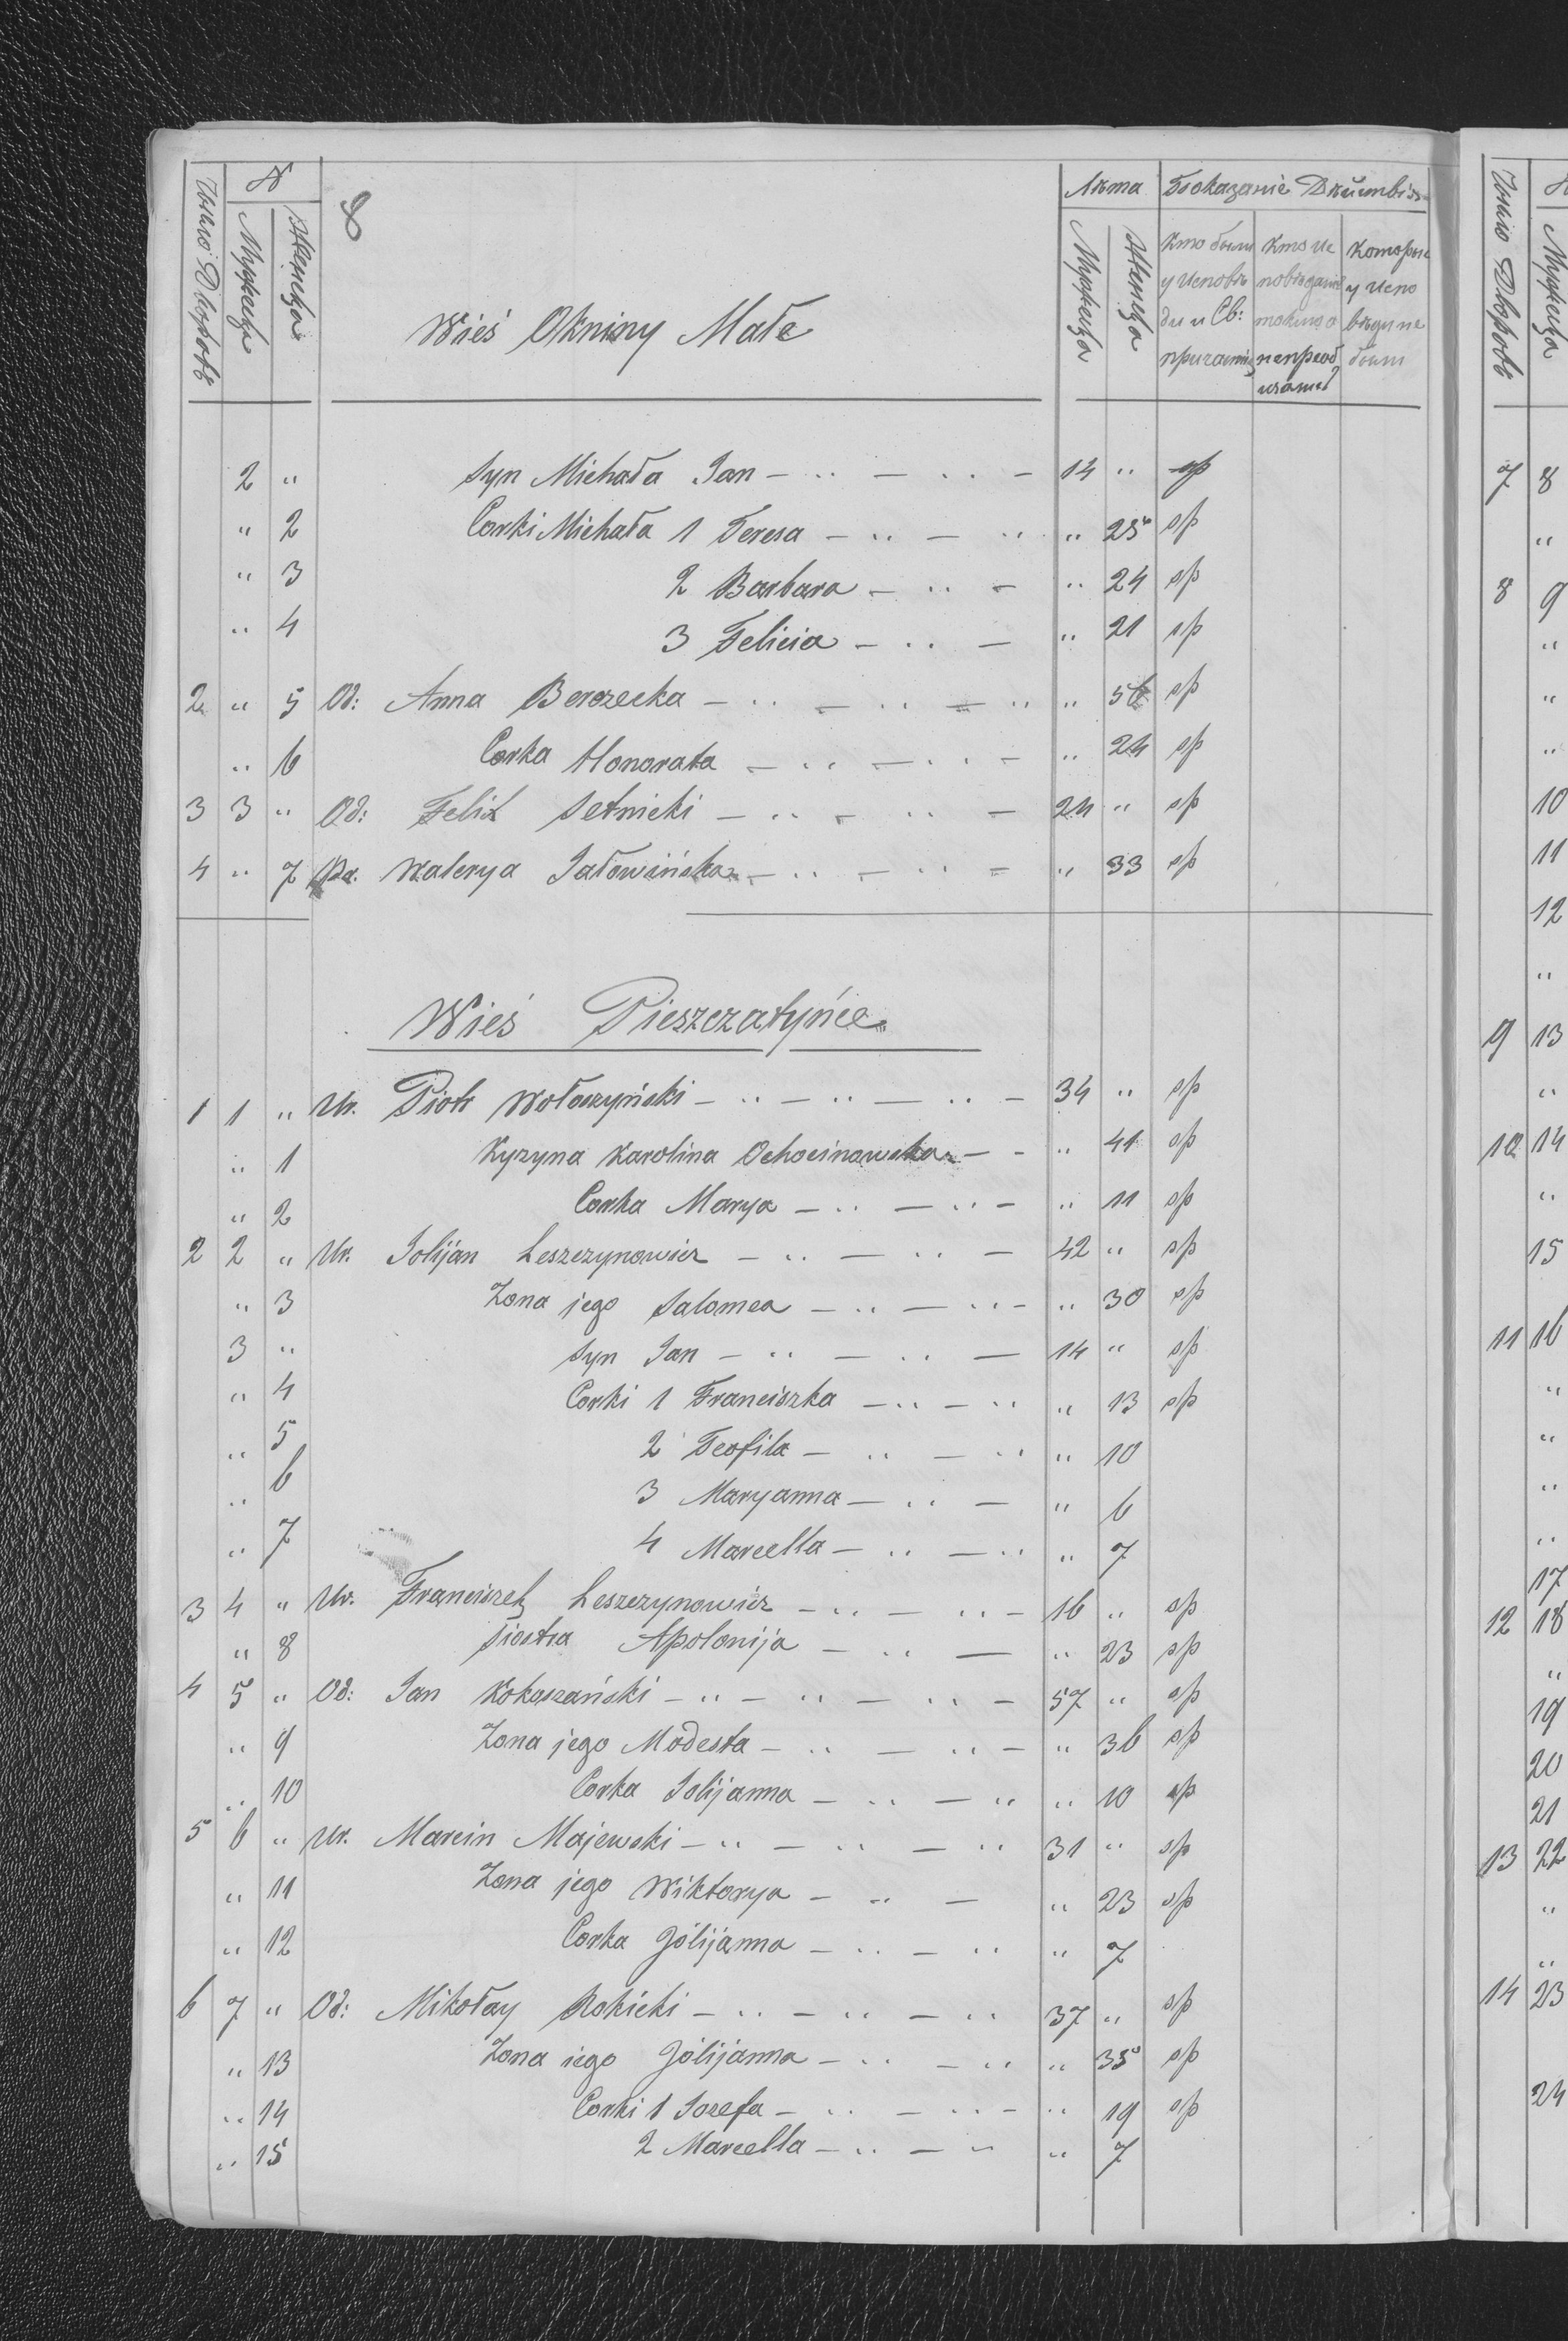 8
Число Дворовъ № Мужеска Женска
Wieś Okniny Małe
Лѣта Мужеска Женска
Показаніе Дѣйствія
кто былъ у исповѣди и Св:
котор у испо вѣди не были
2 " Syn Michała Jan — " — " — 14 " sp
" 2 Corki Michała 1 Teresa — " — " " 25 sp
" 3 2 Barbara — " — " 24 sp
" 4 3 Felicia — " — " 21 sp
2 " 5 Od: Anna Berezecka — " — " — " " 56 sp
" 6 Corka Honorata — " — " — " 24 sp
3 3 " Od: Felix Setnicki — " — " — 24 " sp
4 " 7 Walerya Jałowińska — " — " — " 33 sp
Wieś Pieszczatyńce
1 1 " Ur. Piotr Wołoszyński — " — " — " — 34 " sp
" 1 Kyzyna Karolina Ochocinowska — - " 41 sp
" 2 Corka Marya — " — " — " 11 sp
2 2 " Ur. Jolijan Leszczynowicz — " — " — 42 " sp
" 3 Zona jego Salomea — " — " — " 30 sp
3 " Syn Jan — " — " — 14 " sp
" 4 Corki 1 Franciszka — " — " " 13 sp
" 5 2 Teofila — " — " " 10
" 6 3 Maryanna — " — " 6
" 7 4 Marcella — " — " " 7
3 4 " Ur. Franciszek Leszczynowicz — " — " — 16 " sp
" 8 Siostra Apolonija — " — " 23 sp
4 5 " Od: Jan Kokoszański — " — " — " — 57 " sp
" 9 Zona jego Modesta — " — " — " 36 sp
" 10 Corka Jolijanna — " — " " 10 sp
5 6 " Ur. Marcin Majewski — " — " — " 31 " sp
" 11 Zona jego Wiktorya — " — " 23 sp
" 12 Corka Jólijanna — " — " " 7
6 7 " Od: Mikołay Rokicki — " — " — " 37 " sp
" 13 Zona iego Jólijanna — " — " " 35 sp
" 14 Corki 1 Jozefa — " — " — " 19 sp
" 15 2 Marcella — " — " " 7
Число Дворовъ Мужеска
7 8
"
8 9
"
"
"
10
11
12
"
9 13
"
10 14
"
15
11 16
"
"
"
"
17
12 18
"
19
20
21
13 22
"
"
14 23
24